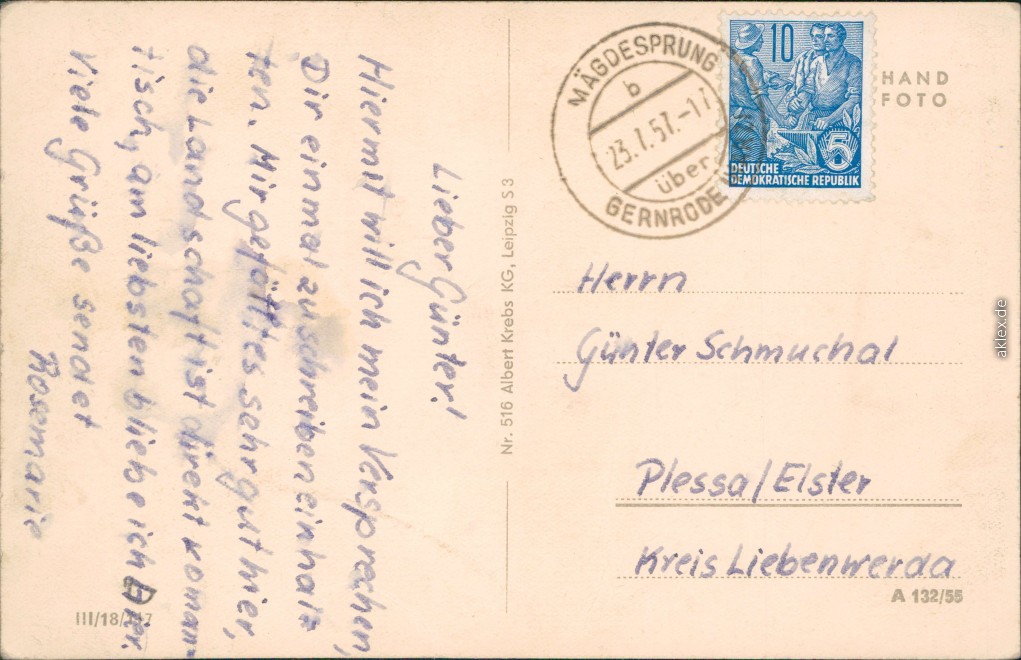 Lieber Günter!
Hiermit will ich mein Versprechen,
Dir einmal zu schreiben einhalt
ten. Mir gefällt es sehr gut hier,
die Landschaft ist direkt roman-
tisch, am liebsten bliebe ich hier.
Viele Grüße sendet
Rosemarie
III/18/
Nr. 516 Albert Krebs KG, Leipzig S 3
MÄGDESPRUNG
b
23.7.57.-17
über
GERNRODE
10
5
DEUTSCHE
DEMOKRATISCHE REPUBLIK
HAND
FOTO
Herrn
Günter Schmuchal
Plessa/Elster
Kreis Liebenwerda
A 132/55
aklex.de